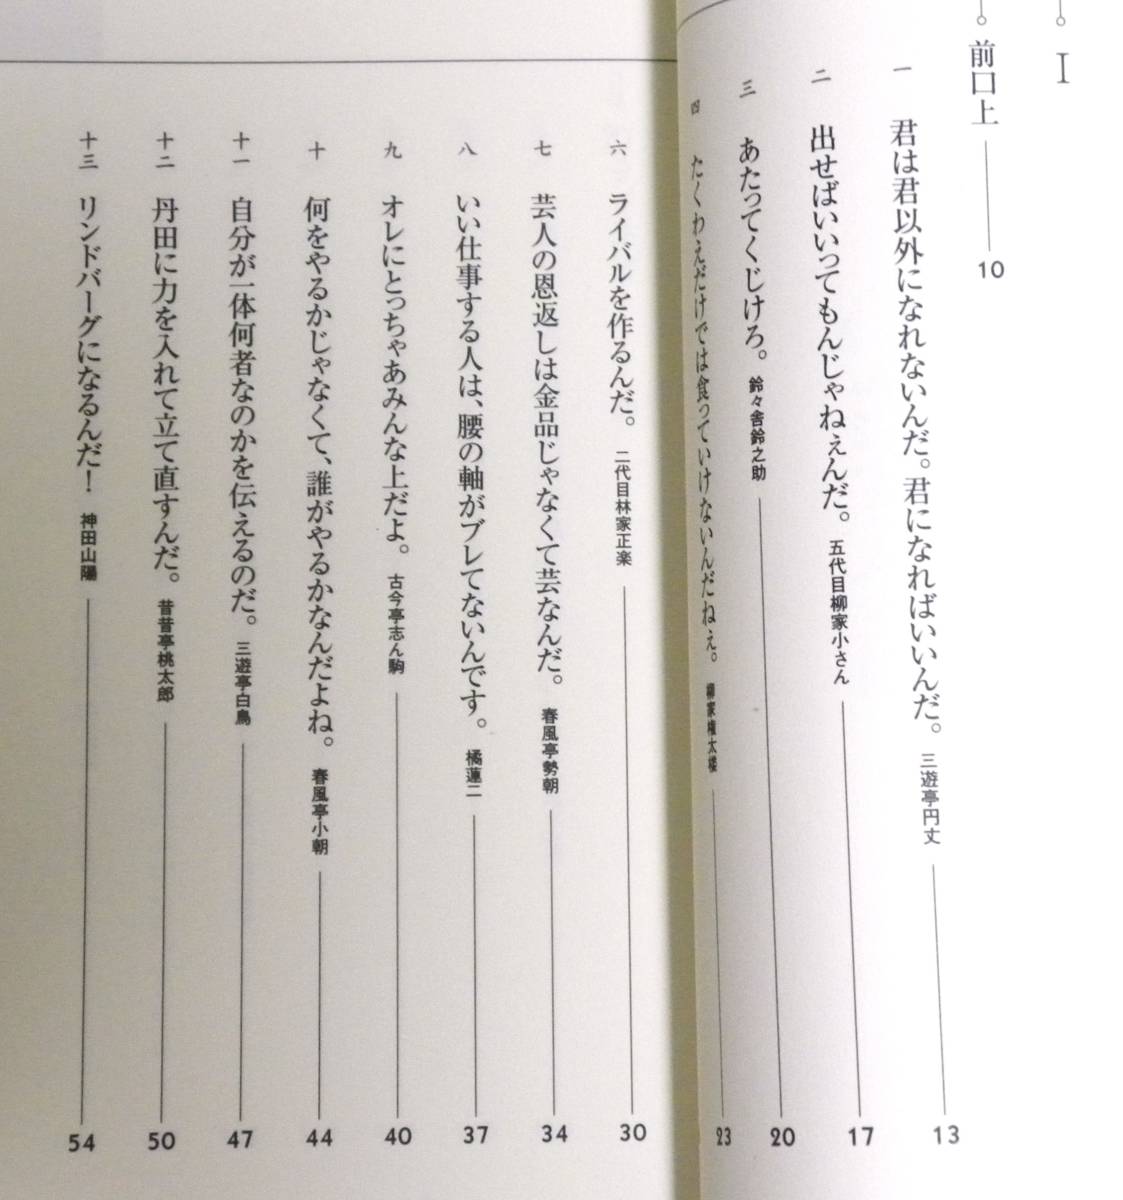 I
前口上 10
一 君は君以外になれないんだ。君になればいいんだ。 三遊亭円丈 13
二 出せばいいってもんじゃねぇんだ。 五代目柳家小さん 17
三 あたってくじけろ。 鈴々舎鈴之助 20
四 たくわえだけでは食っていけないんだねぇ。 柳家権太楼 23
六 ライバルを作るんだ。 二代目林家正楽 30
七 芸人の恩返しは金品じゃなくて芸なんだ。 春風亭勢朝 34
八 いい仕事する人は、腰の軸がブレてないんです。 橘蓮二 37
九 オレにとっちゃあみんな上だよ。 古今亭志ん駒 40
十 何をやるかじゃなくて、誰がやるかなんだよね。 春風亭小朝 44
十一 自分が一体何者なのかを伝えるのだ。 三遊亭白鳥 47
十二 丹田に力を入れて立て直すんだ。 昔昔亭桃太郎 50
十三 リンドバーグになるんだ！ 神田山陽 54